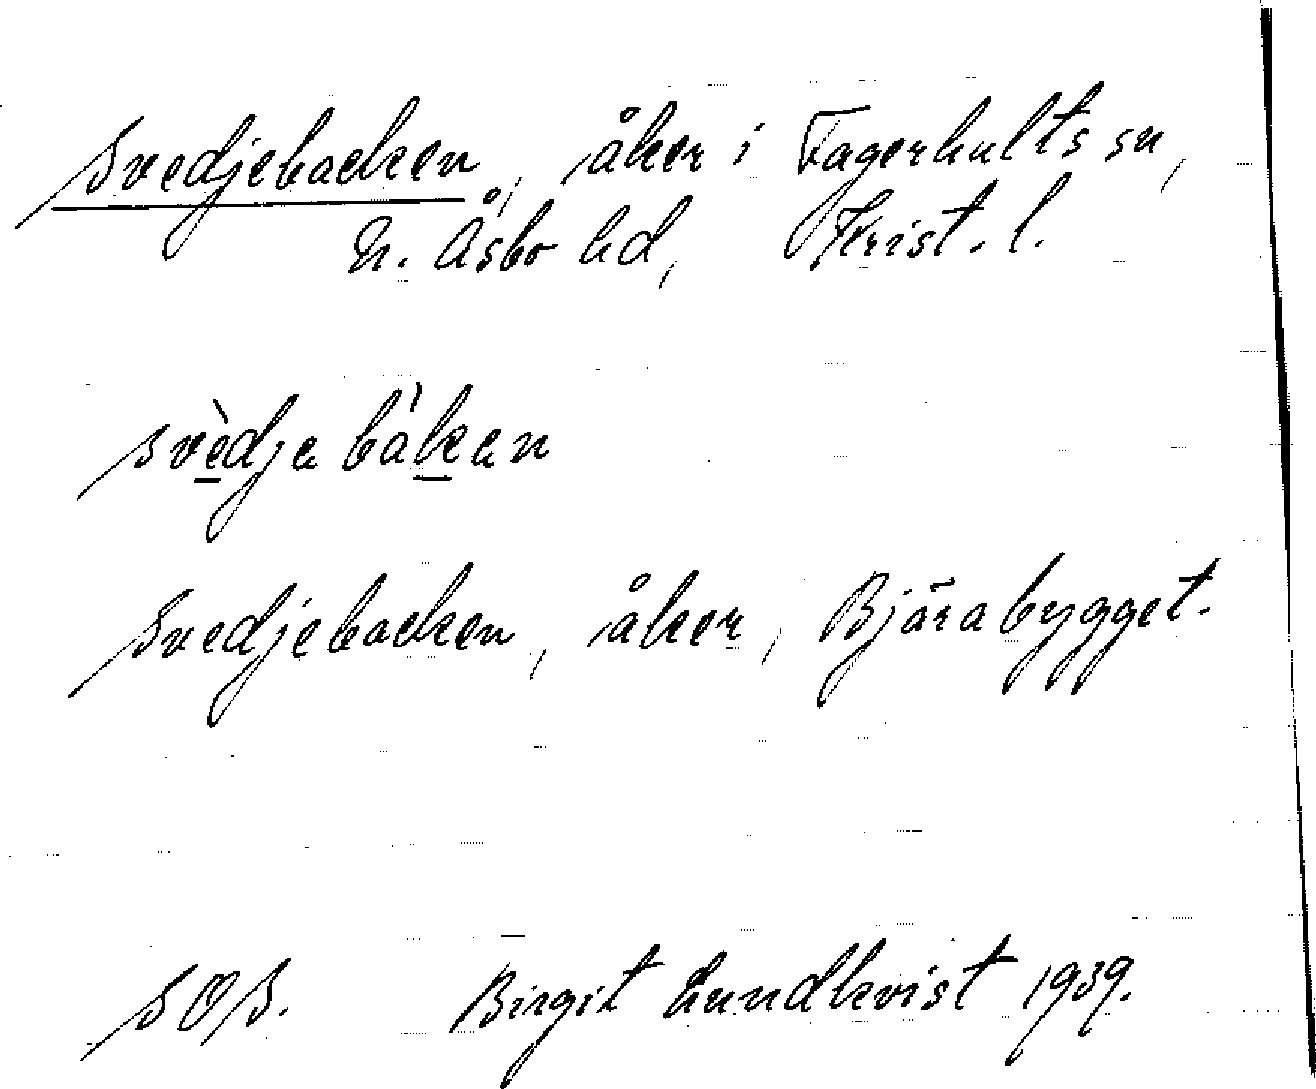 Svedjebacken, åker i Fagerhults sn,
N. Åsbo hd, Krist. l.
svèdjabákan
Svedjebacken, åker, Bjärabygget.
SOS. Birgit Lundkvist 1939.